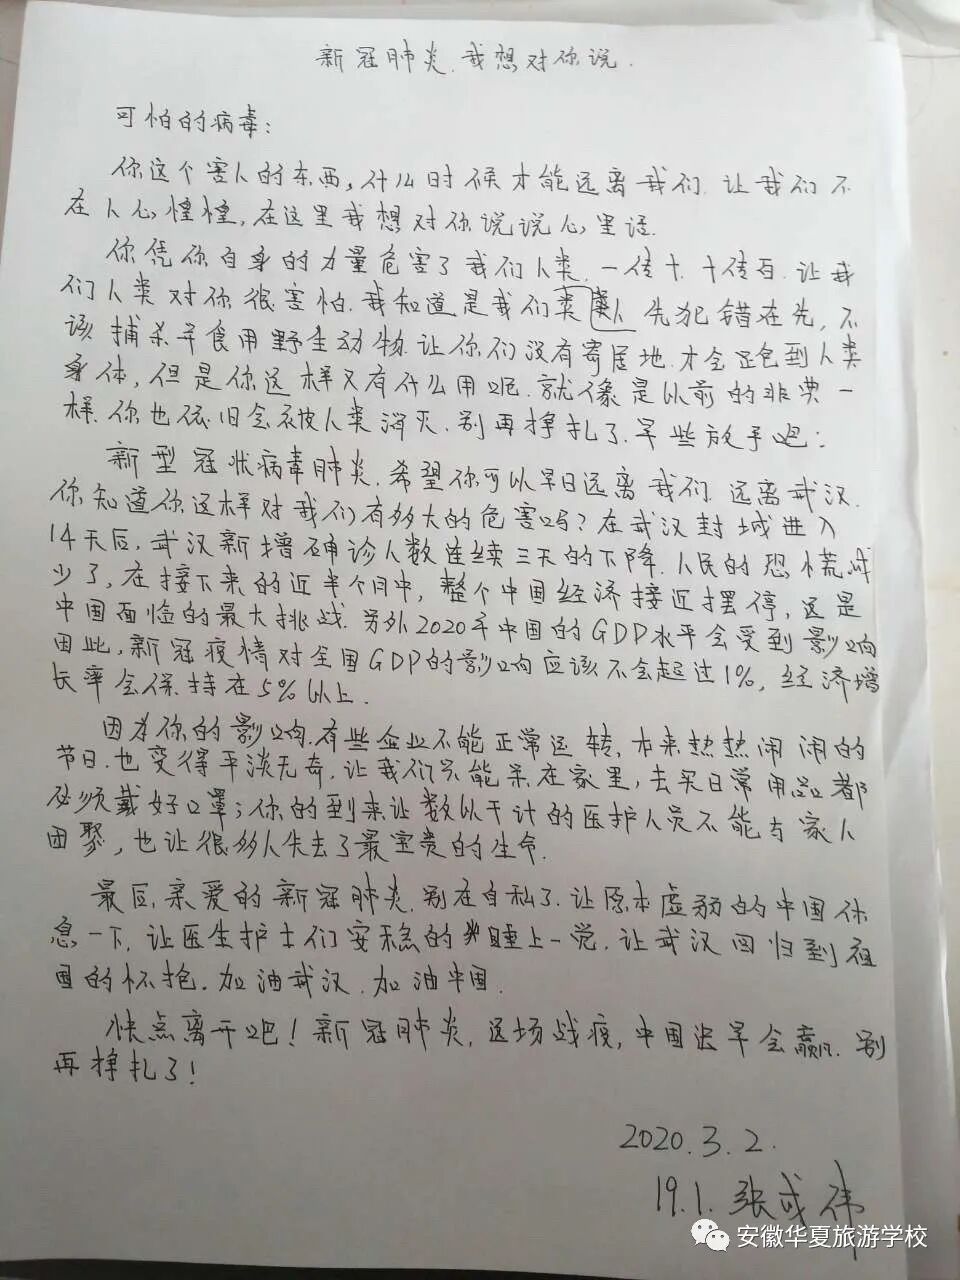 新冠肺炎.我想对你说.
可怕的病毒:
你这个害人的东西,什么时候才能远离我们.让我们不
在人心惶惶,在这里我想对你说说心里话.
你凭你自身的力量危害了我们人类.一传十.十传百.让我
们人类对你很害怕.我知道是我们类人先犯错在先,不
该捕杀并食用野生动物.让你们没有寄居地.才会跑到人类
身体,但是你这样又有什么用呢.就像是以前的非典一
样.你也依旧会被人类消灭.别再挣扎了.早些放手吧:
新型冠状病毒肺炎.希望你可以早日远离我们.远离武汉.
你知道你这样对我们有多大的危害吗?在武汉封城进入
14天后,武汉新增确诊人数连续三天的下降.人民的恐慌减
少了,在接下来的近半个月中,整个中国经济接近摆停,这是
中国面临的最大挑战.另外2020年中国的GDP水平会受到影响
因此,新冠疫情对全国GDP的影响应该不会超过1%,经济增
长率会保持在5%以上.
因为你的影响.有些企业不能正常运转,本来热热闹闹的
节日.也变得平淡无奇,让我们只能呆在家里,去买日常用品都
必须戴好口罩;你的到来让数以千计的医护人员不能与家人
团聚,也让很多人失去了最宝贵的生命.
最后,亲爱的新冠肺炎.别在自私了.让原本虚弱的中国休
息一下.让医生护士们安稳的睡上一觉.让武汉回归到祖
国的怀抱.加油武汉.加油中国.
快点离开吧!新冠肺炎,这场战疫,中国迟早会赢.别
再挣扎了!
2020.3.2.
19.1.张成伟
安徽华夏旅游学校